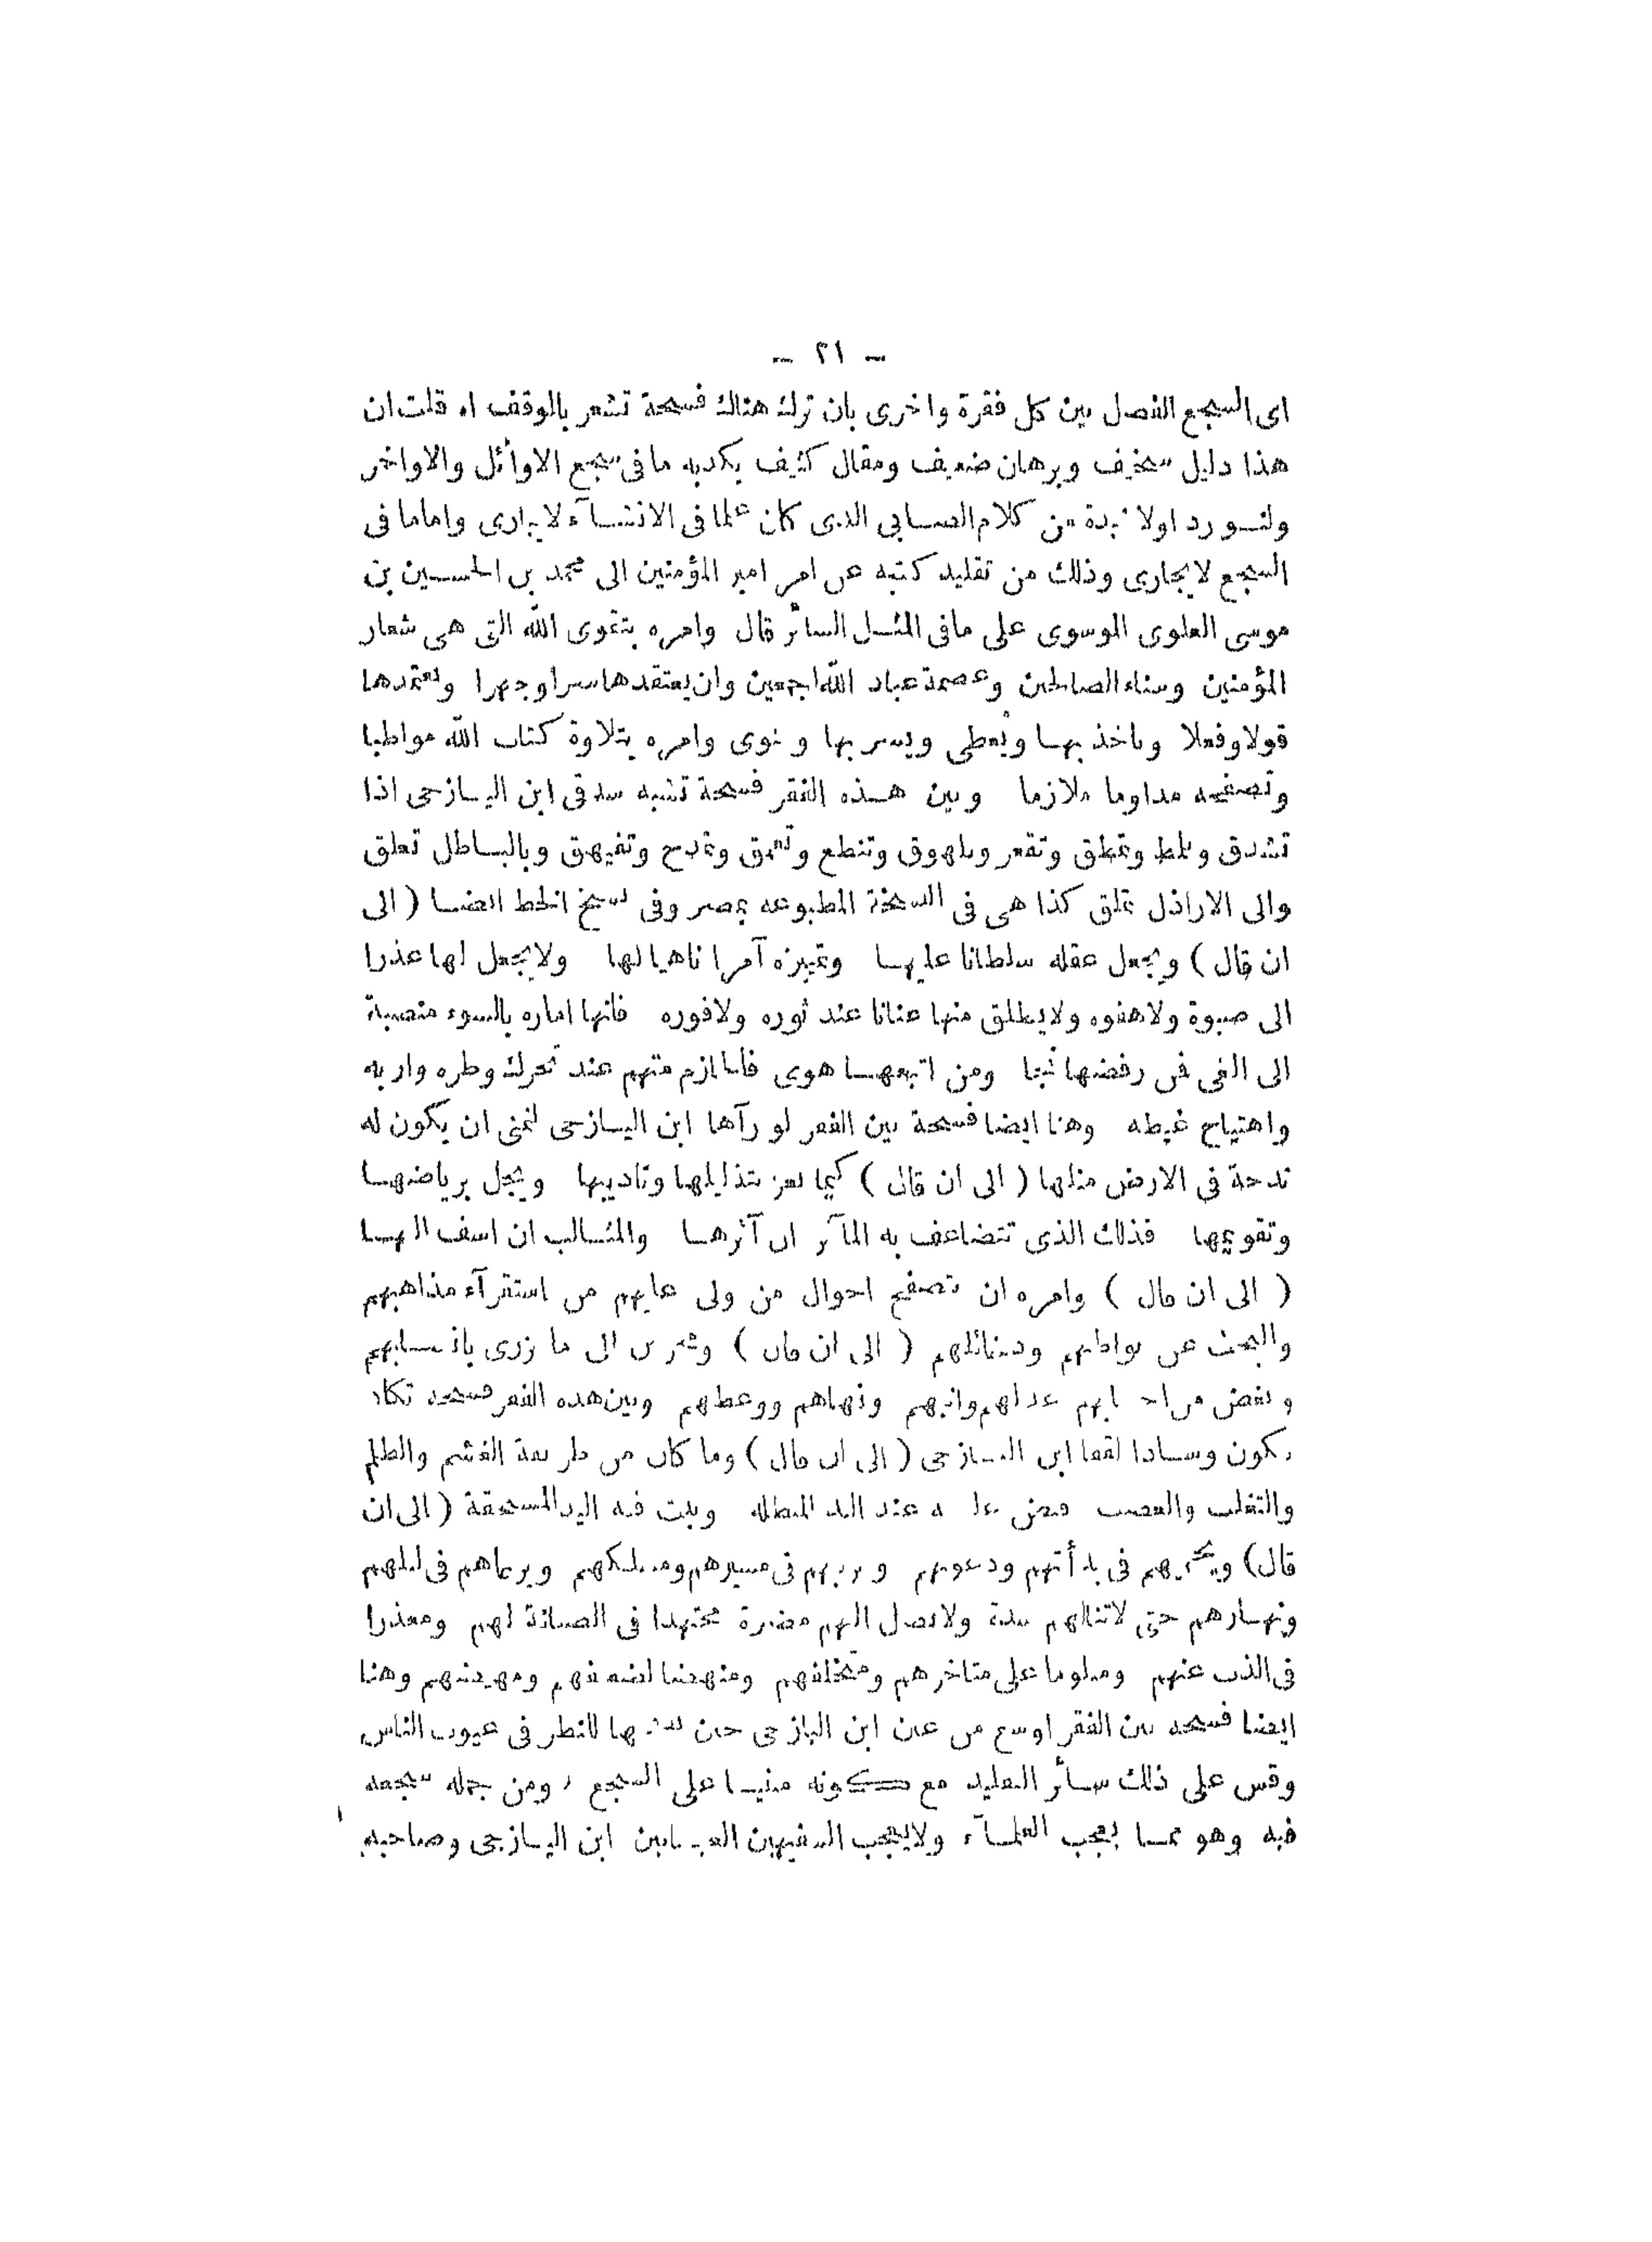 - ٢١ -
اى السجع الفصل بين كل فقرة واخرى بان ترك هناك فسحة تشعر بالوقف اه قلت ان
هذا دليل سخيف وبرهان ضعيف ومقال كثيف يكذبه ما فى سجع الاوائل والاواخر
ولنورد اولا نبذة من كلام الصابى الذى كان علما فى الانشآء لا يبارى واماما فى
السجع لا يجارى وذلك من تقليد كتبه عن امر امير المؤمنين الى محمد بن الحسين بن
موسى العلوى الموسوى على ما فى المثل السائر قال وامره بتقوى الله التى هى شعار
المؤمنين وسناء الصالحين وعصمة عباد الله اجمعين وان يعتقدها سرا وجهرا ويعتمدها
قولا وفعلا وياخذ بها ويعطى ويسر بها وينوى وامره بتلاوة كتاب الله مواظبا
وتصفحه مداوما ملازما وبين هذه الفقر فسحة تشبه شدقى ابن اليازجى اذا
تشدق وتمطق وتقعر وتلهوق وتنطع وتعمق وتفيهق وبالباطل تعلق
والى الاراذل تملق كذا هى فى النسخة المطبوعه بمصر وفى نسخ الخط ايضا ( الى
ان قال ) ويجعل عقله سلطانا عليها وتمييزه آمرا ناهيا لها ولا يجعل لها عذرا
الى صبوة ولا هفوه ولا يطلق منها عنانا عند ثوره ولا فوره فانها اماره بالسوء منصبة
الى الغى فمن رفضها نجا ومن اتبعها هوى فالحازم متهم عند تحرك وطره واربه
واهتياج غيظه وهنا ايضا فسحة بين الفقر لو رآها ابن اليازجى لتمنى ان يكون له
ندحة فى الارض مثلها ( الى ان قال ) كيما يعز بتذليلها وتاديبها ويجل برياضتها
وتقويمها فذلك الذى تتضاعف به المآثر ان آثرها والمثالب ان اسف اليها
( الى ان قال ) وامره ان تصفح احوال من ولى عليهم من استقرآء مذاهبهم
والبحث عن بواطنهم ودخائلهم ( الى ان قال ) الى ما يزرى بانسابهم
ويغض من احسابهم عذلهم وانبهم ونهاهم ووعظهم وبين هذه الفقر فسحة تكاد
تكون وسادا لقفا ابن اليازجى ( الى ان قال ) وما كان من طريقة الغشم والظلم
والتغلب والغصب قبض عنه اليد المبطله وثبت فيه اليد المستحقة ( الى ان
قال ) فى بدأتهم وعودتهم ويرتبهم فى مسيرهم ومسلكهم ويرعاهم فى ليلهم
ونهارهم حتى لا تنالهم شدة ولا تصل اليهم مضرة مجتهدا فى الصيانة لهم ومعذرا
فى الذب عنهم ومتلوما على متاخرهم ومتخلفهم ومنهضا لضعيفهم ومهيضهم وهنا
ايضا فسحة بين الفقر اوسع من عين ابن اليازجى حين للنظر فى عيوب الناس
وقس على ذلك سائر التقليد مع كونه مبنيا على السجع ومن جملة سجعه
فيه وهو مما يعجب العلمآء ولا يعجب السفيهين العيابين ابن اليازجى وصاحبه